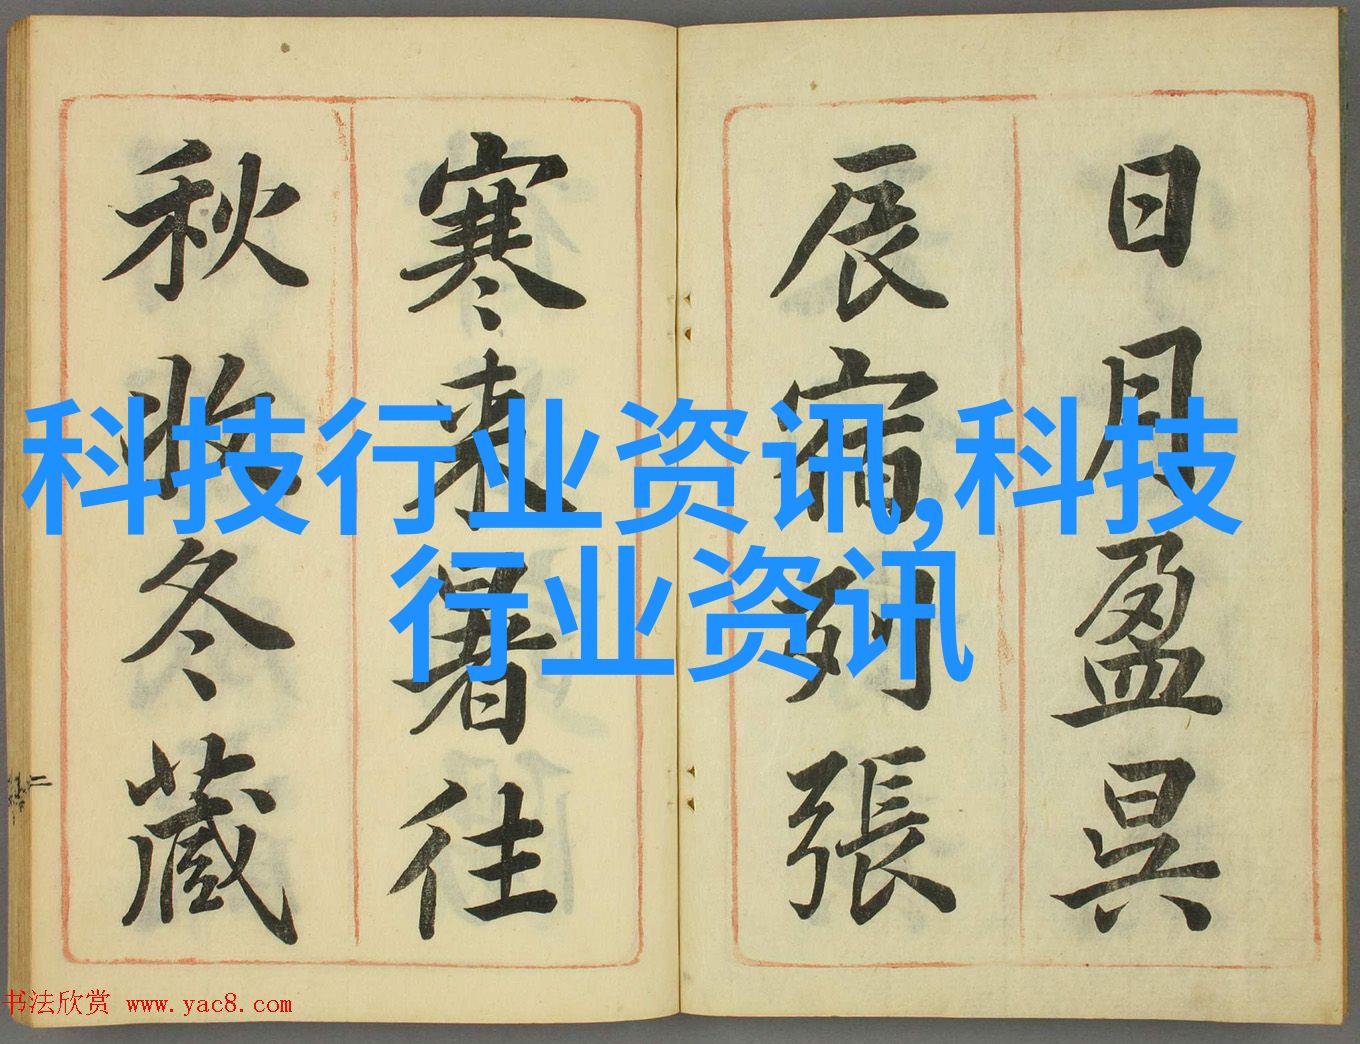 日月盈昃
辰宿列張
寒来暑往
秋收冬藏
科技行业资讯,科技
行业资讯
书法欣赏 www.yac8.com